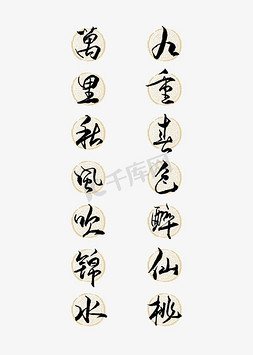 九重春色醉仙桃
萬里秋風吹錦水
千库网
588ku.com